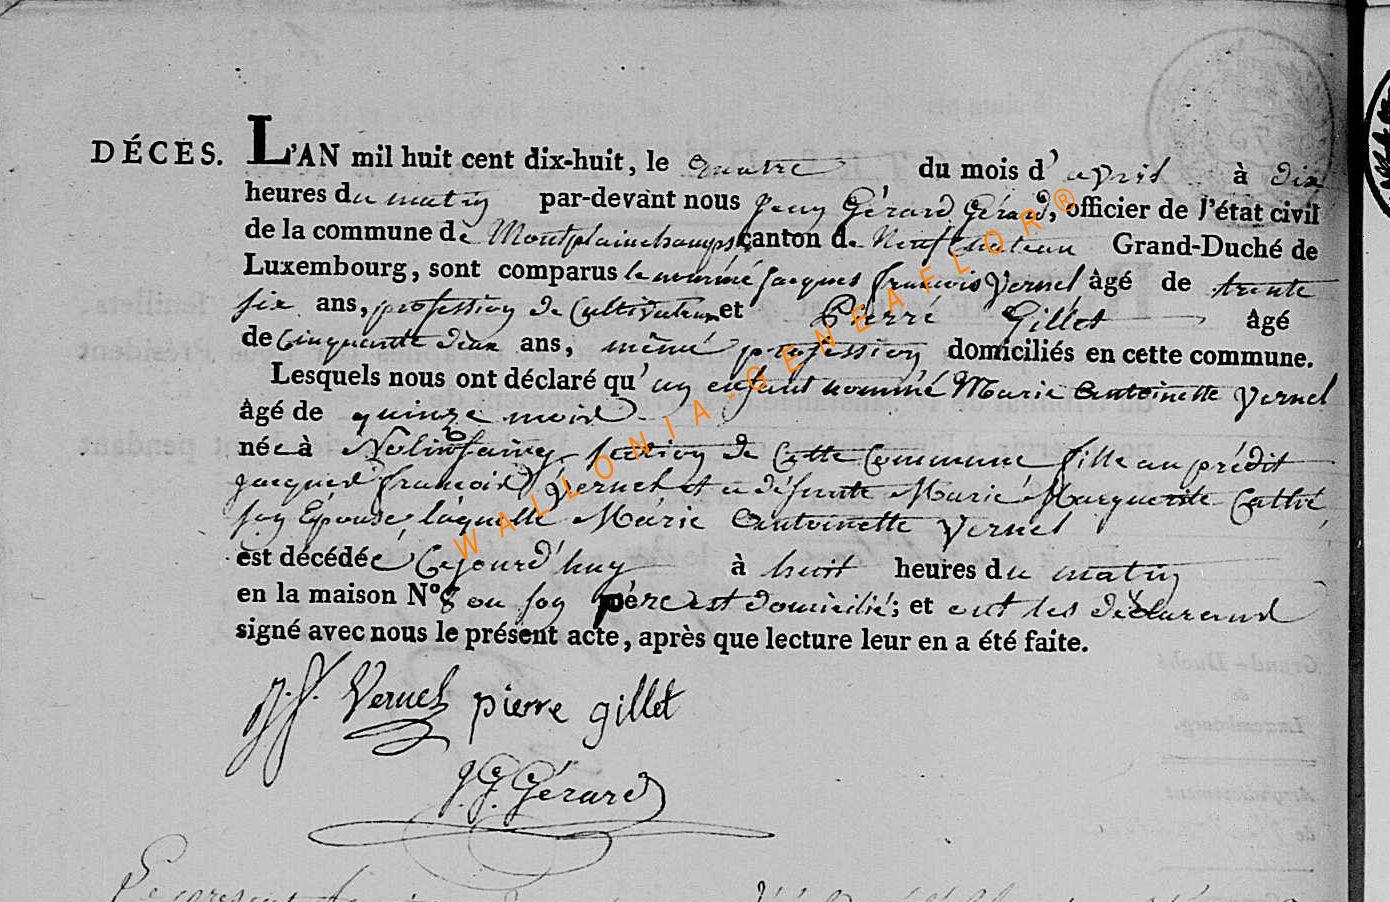 DÉCÈS. L'AN mil huit cent dix-huit, le quatre du mois d'avril à dix
heures du matin par-devant nous Jean Gérard Gérard, officier de l'état civil
de la commune de Montplainchamps canton de Neufchateau Grand-Duché de
Luxembourg, sont comparus le nommé jacques françois Vernel âgé de trente
six ans, profession de Cultivateur et Pierré Gillet âgé
de cinquante deux ans, mêmé profession domiciliés en cette commune.
Lesquels nous ont déclaré qu'un enfant nommé Marie Antoinette Vernel
âgé de quinze mois
née à Nolinfaing section de Cette Commune fille au prédit
jacques françois Vernel et a défunte Marie Marguerite
son Épouse, laquelle Marie Antoinette Vernel
est décédée Cejourd'huy à huit heures du matin
en la maison N° 8 ou son père est domicilié; et ont les déclarans
signé avec nous le présent acte, après que lecture leur en a été faite.
J. f. Vernel pierre gillet
J. G. Gérard
WALLONIA-GENEAFLOR®